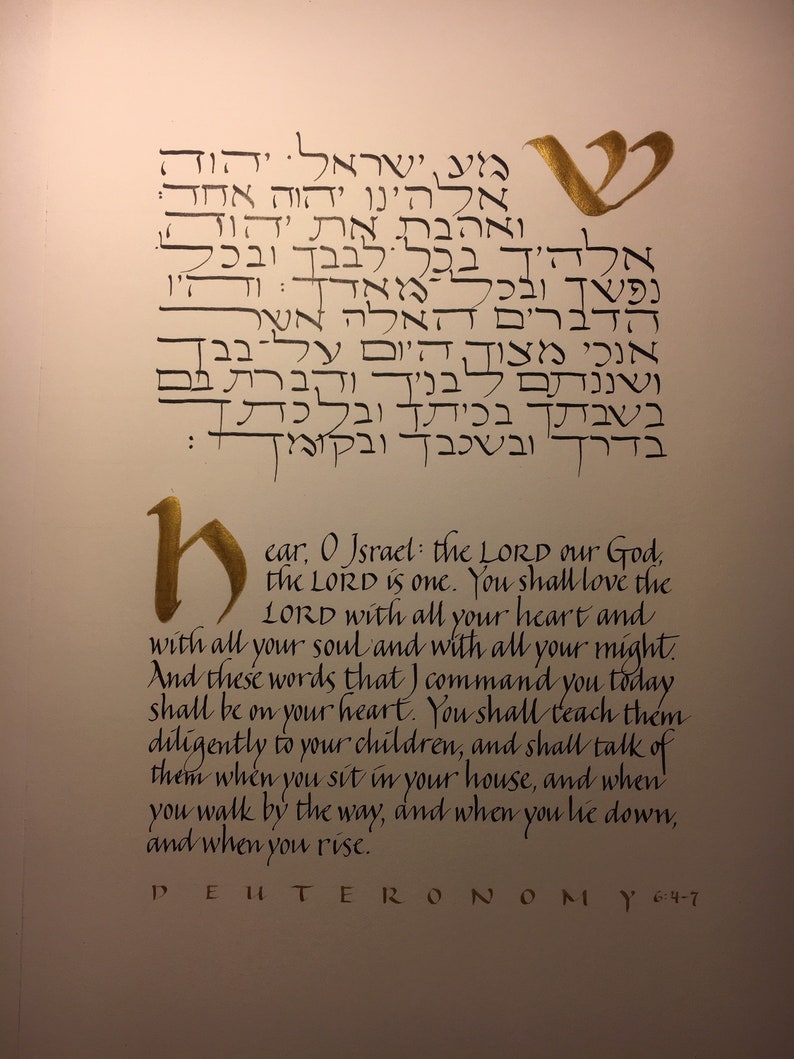 שמע ישראל יהוה
אלהינו יהוה אחד:
ואהבת את יהוה
אלהיך בכל־לבבך ובכל
נפשך ובכל־מאדך: והיו
הדברים האלה אשר
אנכי מצוך היום על־בבך
ושננתם לבניך ודברת בם
בשבתך בביתך ובלכתך
בדרך ובשכבך ובקומך:
Hear, O Israel: the LORD our God,
the LORD is one. You shall love the
LORD with all your heart and
with all your soul and with all your might.
And these words that I command you today
shall be on your heart. You shall teach them
diligently to your children, and shall talk of
them when you sit in your house, and when
you walk by the way, and when you lie down,
and when you rise.
DEUTERONOMY 6:4-7